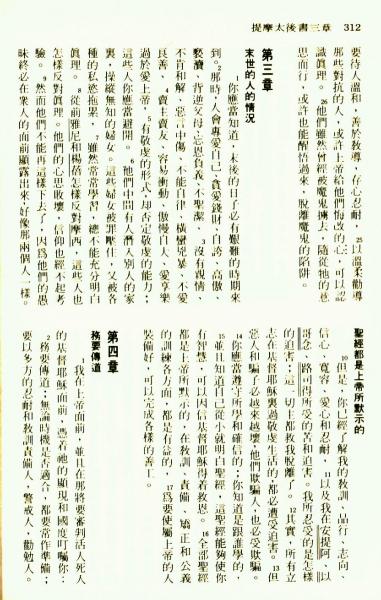 提摩太後書三章 312
要待人溫和，善於教導，存心忍耐，25以溫柔勸導
那些對抗的人，或許上帝給他們悔改的心，可以認
識真理。26他們雖然曾經被魔鬼擄去，隨從牠的意
思而行，或許也能醒悟過來，脫離魔鬼的陷阱。
第三章
末世的人的情況
1你應當知道，末後的日子必有艱難的時期來
到。2那時，人會專愛自己、貪愛錢財、自誇、高傲、
褻瀆、背逆父母、忘恩負義、不聖潔、3沒有親情、
不肯和解、惡言中傷、不能自律、橫蠻兇暴、不愛
良善、4賣主賣友、容易衝動、傲慢自大、愛享樂
過於愛上帝，5有敬虔的形式，却否定敬虔的能力；
這些人你應當避開。6他們中間有人潛入別人的家
裏，操縱無知的婦女。這些婦女被罪壓住，又被各
種的私慾拖累，7雖然常常學習，總不能充分明白
真理。8從前雅尼和楊庇怎樣反對摩西，這些人也
怎樣反對真理。他們的心思敗壞，信仰也經不起考
驗。9然而他們不能再這樣下去了，因爲他們的愚
昧終必在衆人的面前顯露出來，好像那兩個人一樣。
聖經都是上帝所默示的
10但是，你已經了解我的教訓、品行、志向、
信心、寬容、愛心和忍耐，11以及我在安提阿、以
哥念、路司得所受的苦和迫害。我所忍受的是怎樣
的迫害；這一切主都救我脫離了。12其實，所有立
志在基督耶穌裏過敬虔生活的，都必遭受迫害。13但
惡人和騙子必越來越壞，他們欺騙人，也必受欺騙。
14你應當遵守所學和確信的，你知道是跟誰學的，
15並且知道自己從小就明白聖經，這聖經能夠使你
有智慧，可以因信基督耶穌得着救恩。16全部聖經
都是上帝所默示的，在教訓、責備、矯正和公義
的訓練各方面，都是有益的，17爲要使屬上帝的人
裝備好，可以完成各樣的善工。
第四章
務要傳道
1我在上帝面前，並且在那將要審判活人死人
的基督耶穌面前，憑着祂的顯現和國度叮囑你：
2務要傳道；無論時機是否適合，都要常作準備；
要以多方的忍耐和教訓責備人，警戒人，勸勉人。